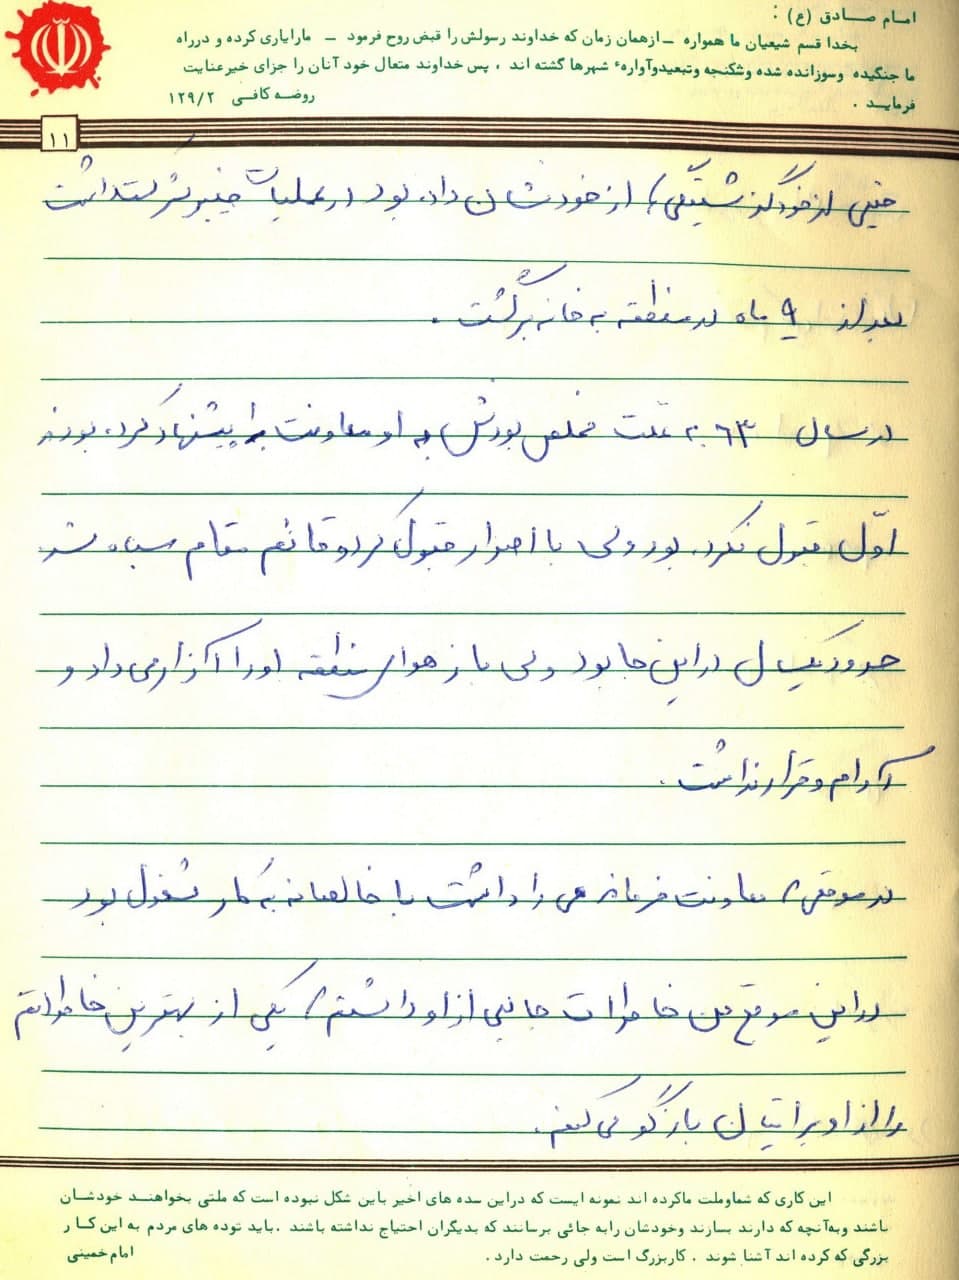 امام صادق (ع) :
بخدا قسم شیعیان ما همواره – ازهمان زمان که خداوند رسولش را قبض روح فرمود – مارایاری کرده و درراه
ما جنگیده وسوزانده شده وشکنجه وتبعیدوآوارهٔ شهرها گشته اند ، پس خداوند متعال خود آنان را جزای خیرعنایت
فرمایـد . روضه کافی ۱۲۹/۲
۱۱
خیلی از خودگذشتگی از خود نشان داده بود در عملیات خیبر شرکت داشت
بعد از ۹ ماه در منطقه به خانه برگشت .
در سال ۶۳ به علت مخلص بودنش به او معاونت را پیشنهاد کرده بودند
اوّل قبول نکرده بود ولی با اصرار قبول کرد و قائم مقام سپاه شد
حدود یکسال در اینجا بود ولی باز هوای منطقه او را آزار می داد و
آرام و قرار نداشت .
در موقعی معاونت فرماندهی را داشت با خالصانه به کار مشغول بود
در این موقع من خاطرات جالبی از او داشتم یکی از بهترین خاطراتم
را از او برایتان بازگو می کنم .
این کاری که شماوملت ماکرده اند نمونه ایست که دراین سده های اخیر باین شکل نبوده است که ملتی بخواهنـد خودشـان
باشند وبه‌آنچه که دارند بسازند وخودشان رابه جائی برسانند که بدیگران احتیاج نداشته باشند . باید توده های مردم به این کـار
بزرگی که کرده اند آشنا شوند . کاربزرگ است ولی رحمت دارد . امام خمینی